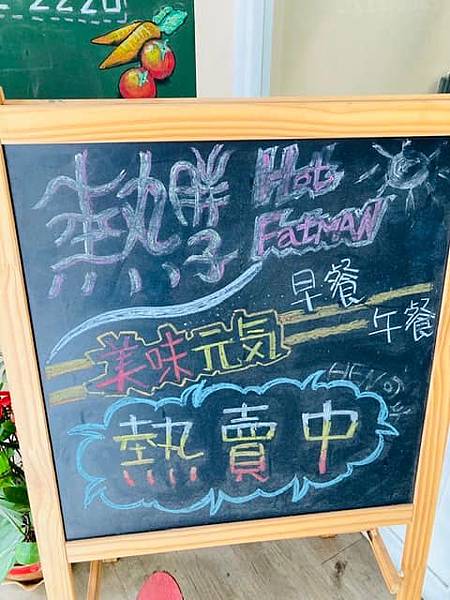 熱胖子
Hot
FatMAN
早餐
午餐
美味元気
熱賣中